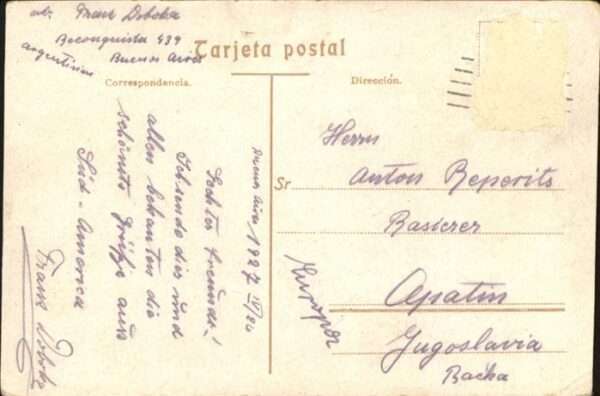 ab. Franz Doboka
Reconquista 439
Buenos Aires
Argentinien
Tarjeta postal
Correspondencia.
Dirección.
Buenos Aires 1927 IV/20
Lechtes freund!
Ich sende dir und
allen bekanten die
schönste Grüße aus
Süd-America
Franz Doboka
Herrn
Sr Anton Reperits
Rasierer
Apatin
Jugoslavia
Bačka
Europa